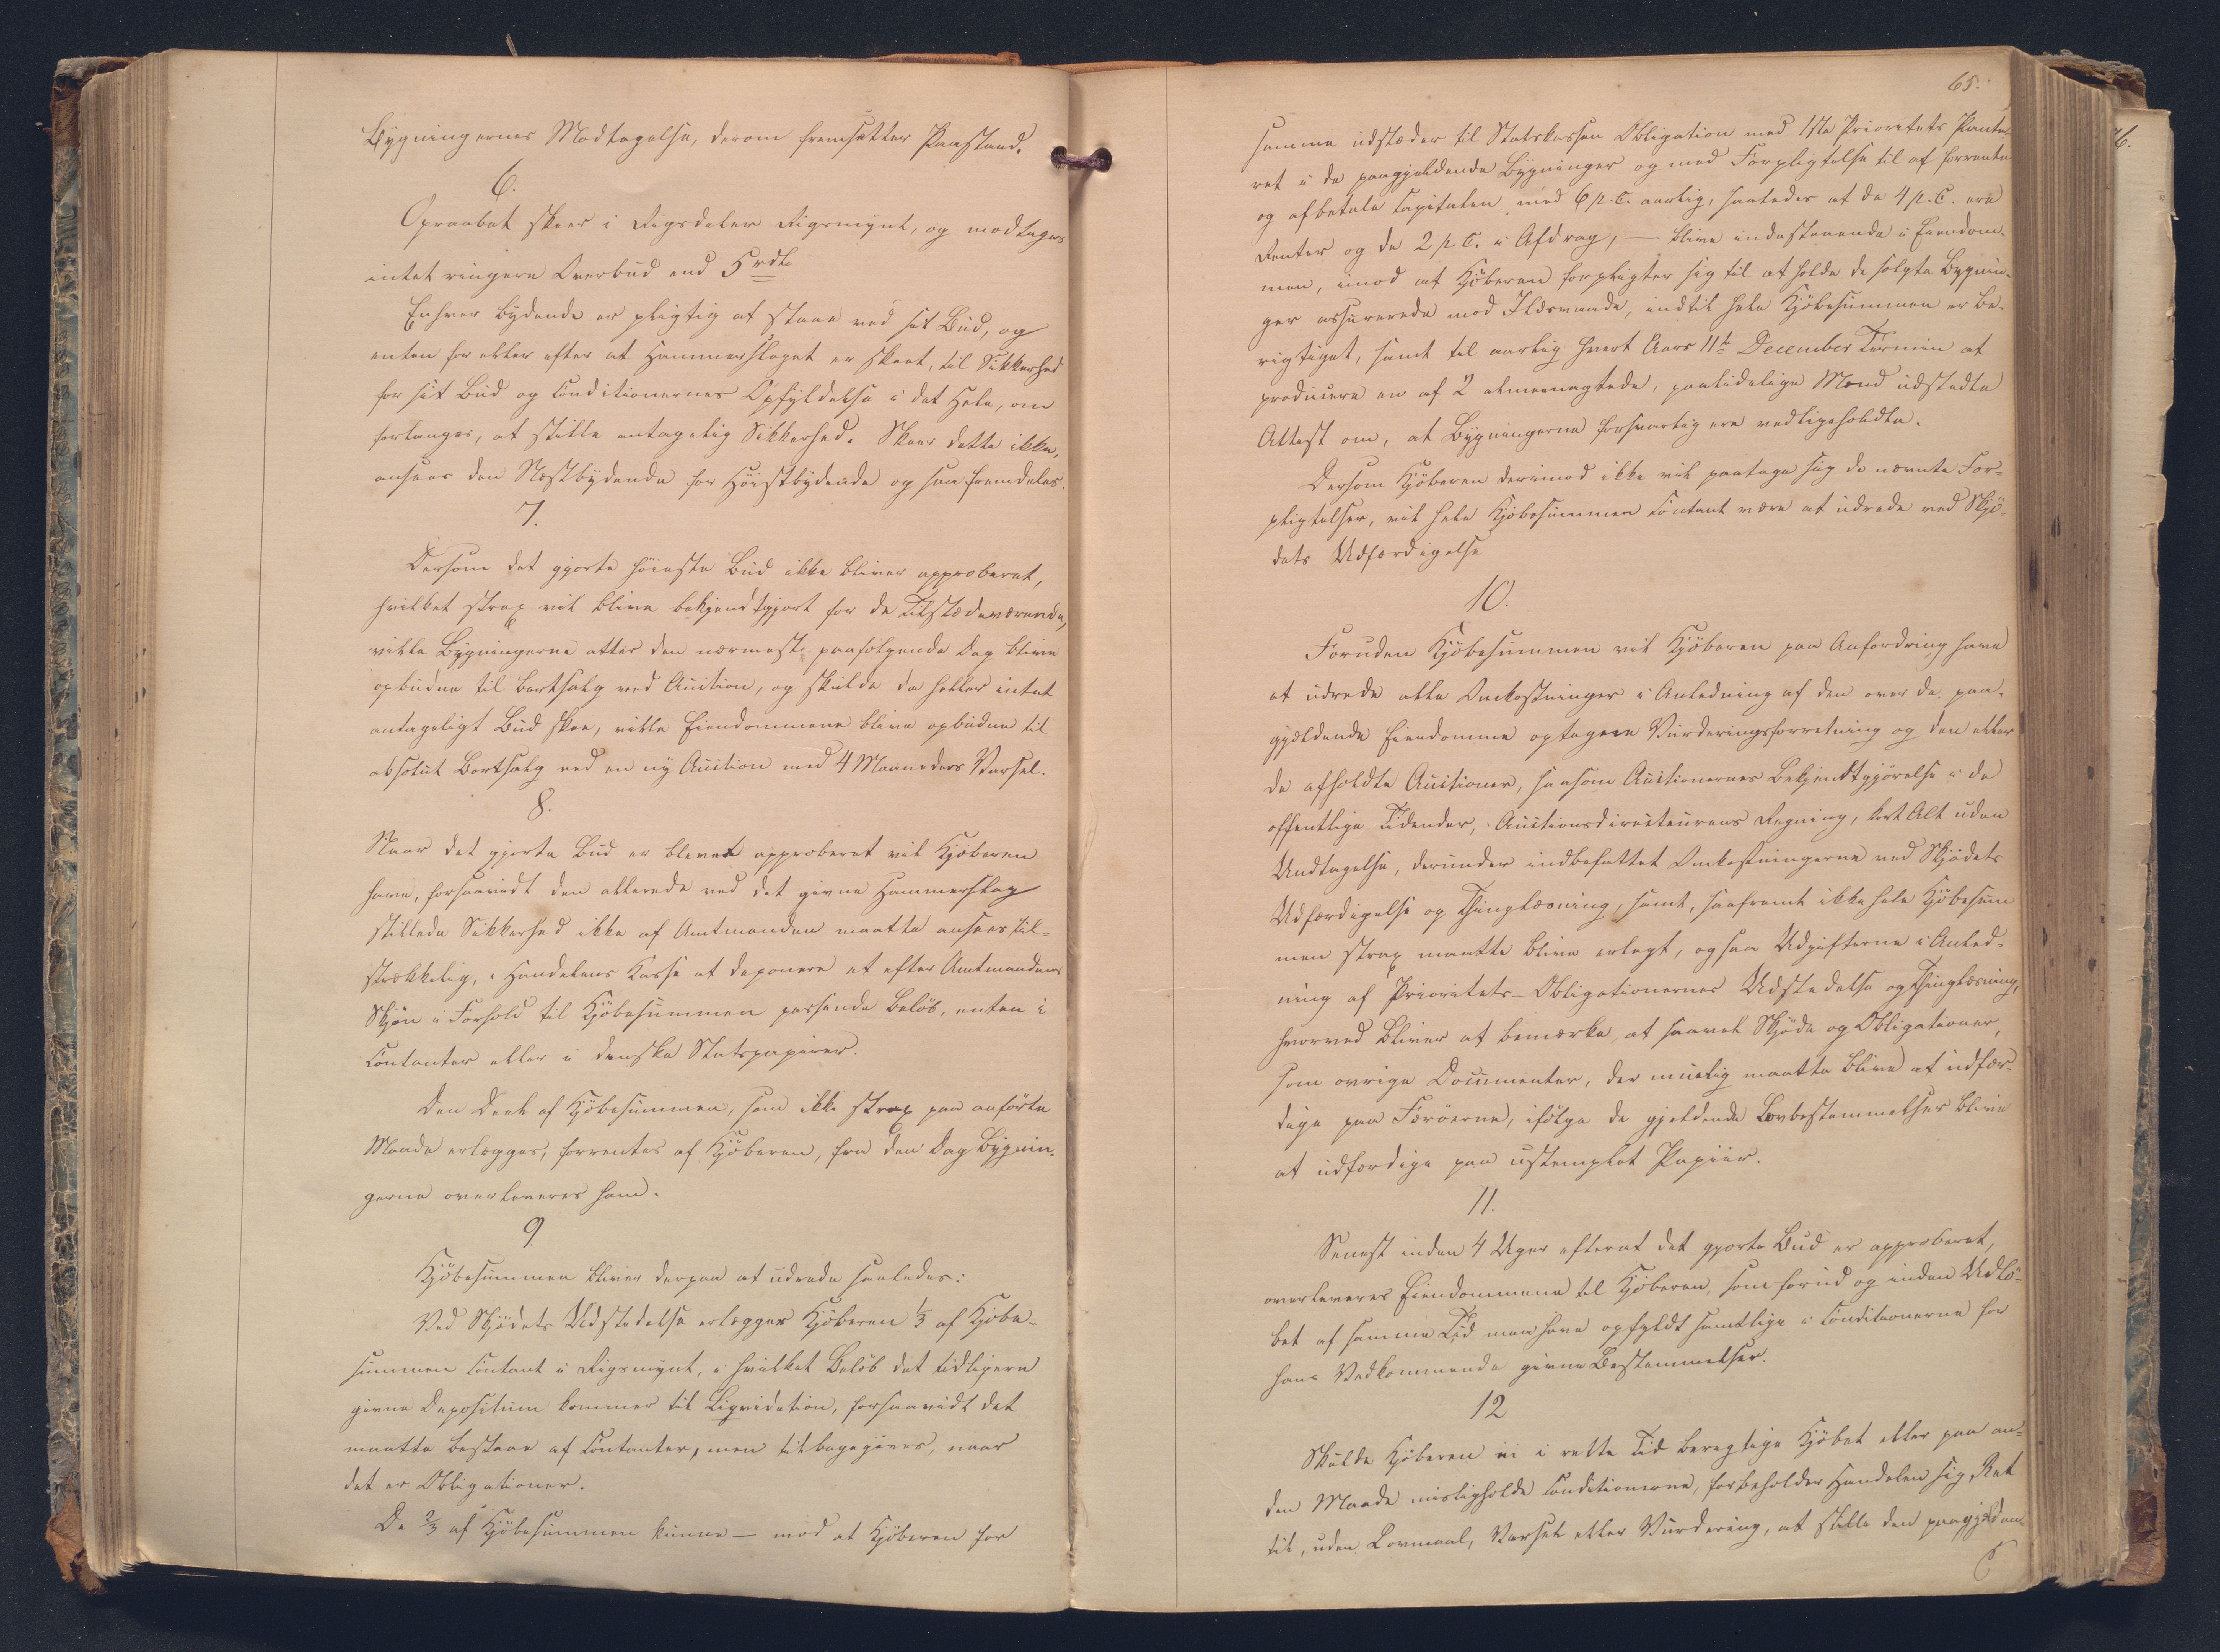 Bygningernes Modtagelse, derom fremsætter Paastand.
6.
Opraabet skeer i Rigsdaler Rigsmynt, og modtages
intet ringere Overbud end 5 rdl.
Enhver Bydende er pligtig at staae ved sit Bud, og
enten før eller efter at Hammerslaget er skeet, til Sikkerhed
for sit Bud og Conditionernes Opfyldelse i det Hele, om
forlanges, at stille antagelig Sikkerhed. Skeer dette ikke,
ansees den Næstbydende for Höistbydende og saa fremdeles.
7.
Dersom det gjorte höieste Bud ikke bliver approberet,
hvilket strax vil blive bekjendtgjort for de Tilstædeværende,
ville Bygningerne atter den nærmest paafølgende Dag blive
opbudne til Bortsalg ved Auction, og skulde da heller intet
antageligt Bud skee, ville Eiendommene blive opbudne til
absolut Bortsalg ved en ny Auction med 4 Maaneders Varsel.
8.
Naar det gjorte Bud er blevet approberet vil Kjøberen
have, forsaavidt den allerede ved det givne Hammerslag
stillede Sikkerhed ikke af Amtmanden maatte ansees til-
strækkelig, i Handelens Kasse at deponere et efter Amtmandens
Skjøn i Forhold til Kjöbesummen passende Beløb, enten i
Contanter eller i danske Statspapirer.
Den Deel af Kjöbesummen, som ikke strax paa anförte
Maade erlægges, forrentes af Kjöberen, fra den Dag Bygnin-
gerne overleveres ham.
9
Kjöbesummen bliver derpaa at udrede saaledes:
Ved Skjödets Udstedelse erlægger Kjöberen 1/3 af Kjöbe-
summen contant i Rigsmynt, i hvilket Belöb det tidligere
givne Depositum kommer til Liqvidation, forsaavidt det
maatte bestaae af Contanter, men tilbagegives, naar
det er Obligationer.
De 2/3 af Kjöbesummen kunne — mod at Kjöberen for
65.
samme udstæder til Statskassen Obligation med 1ste Prioritets Pante-
ret i de paagjældende Bygninger og med Forpligtelse til at forrente
og afbetale Capitalen med 6 p. C. aarlig, saaledes at de 4 p. C. ere
Renter og de 2 p. C. i Afdrag, — blive indestaaende i Eiendom-
men, imod at Kjöberen forpligter sig til at holde de solgte Bygnin-
ger assurerede mod Ildsvaade, indtil hele Kjöbesummen er be-
rigtiget, samt til aarlig hvert Aars 11te December Termin at
producere en af 2 almeenagtede, paalidelige Mænd udstedte
Attest om, at Bygningerne forsvarlig ere vedligeholdte.
Dersom Kjöberen derimod ikke vil paatage sig de nævnte For-
pligtelser, vil hele Kjöbesummen contant være at udrede ved Skjö-
dets Udfærdigelse
10.
Foruden Kjöbesummen vil Kjöberen paa Anfordring have
at udrede alle Omkostninger i Anledning af den over de paa-
gjældende Eiendomme optagne Vurderingsforretning og den eller
de afholdte Auctioner, saasom Auctionernes Bekjendtgjörelse i de
offentlige Tidender, Auctionsdirecteurens Regning, kort Alt uden
Undtagelse, derunder indbefattet Omkostningerne ved Skjödets
Udfærdigelse og Thinglæsning, samt, saafremt ikke hele Kjöbesum
men strax maatte blive erlagt, ogsaa Udgifterne i Anled-
ning af Prioritets-Obligationernes Udstedelse og Thinglæsning,
hvorved bliver at bemærke, at saavel Skjöde og Obligationer,
som övrige Documenter, der muelig maatte blive at udfær-
dige paa Færöerne, ifölge de gjældende Lovbestemmelser blive
at udfærdige paa ustemplet Papiir.
11.
Senest inden 4 Uger efterat det gjorte Bud er approberet,
overleveres Eiendommene til Kjöberen, som forud og inden Udlö-
bet af samme Tid maa have opfyldt samtlige i Conditionerne for
hans Vedkommende givne Bestemmelser.
12
Skulde Kjöberen ei i rette Tid berigtige Kjöbet eller paa an-
den Maade misligholde Conditionerne, forbeholder Handelen sig Ret
til, uden Lovmaal, Varsel eller Vurdering, at stille den paagjælden-